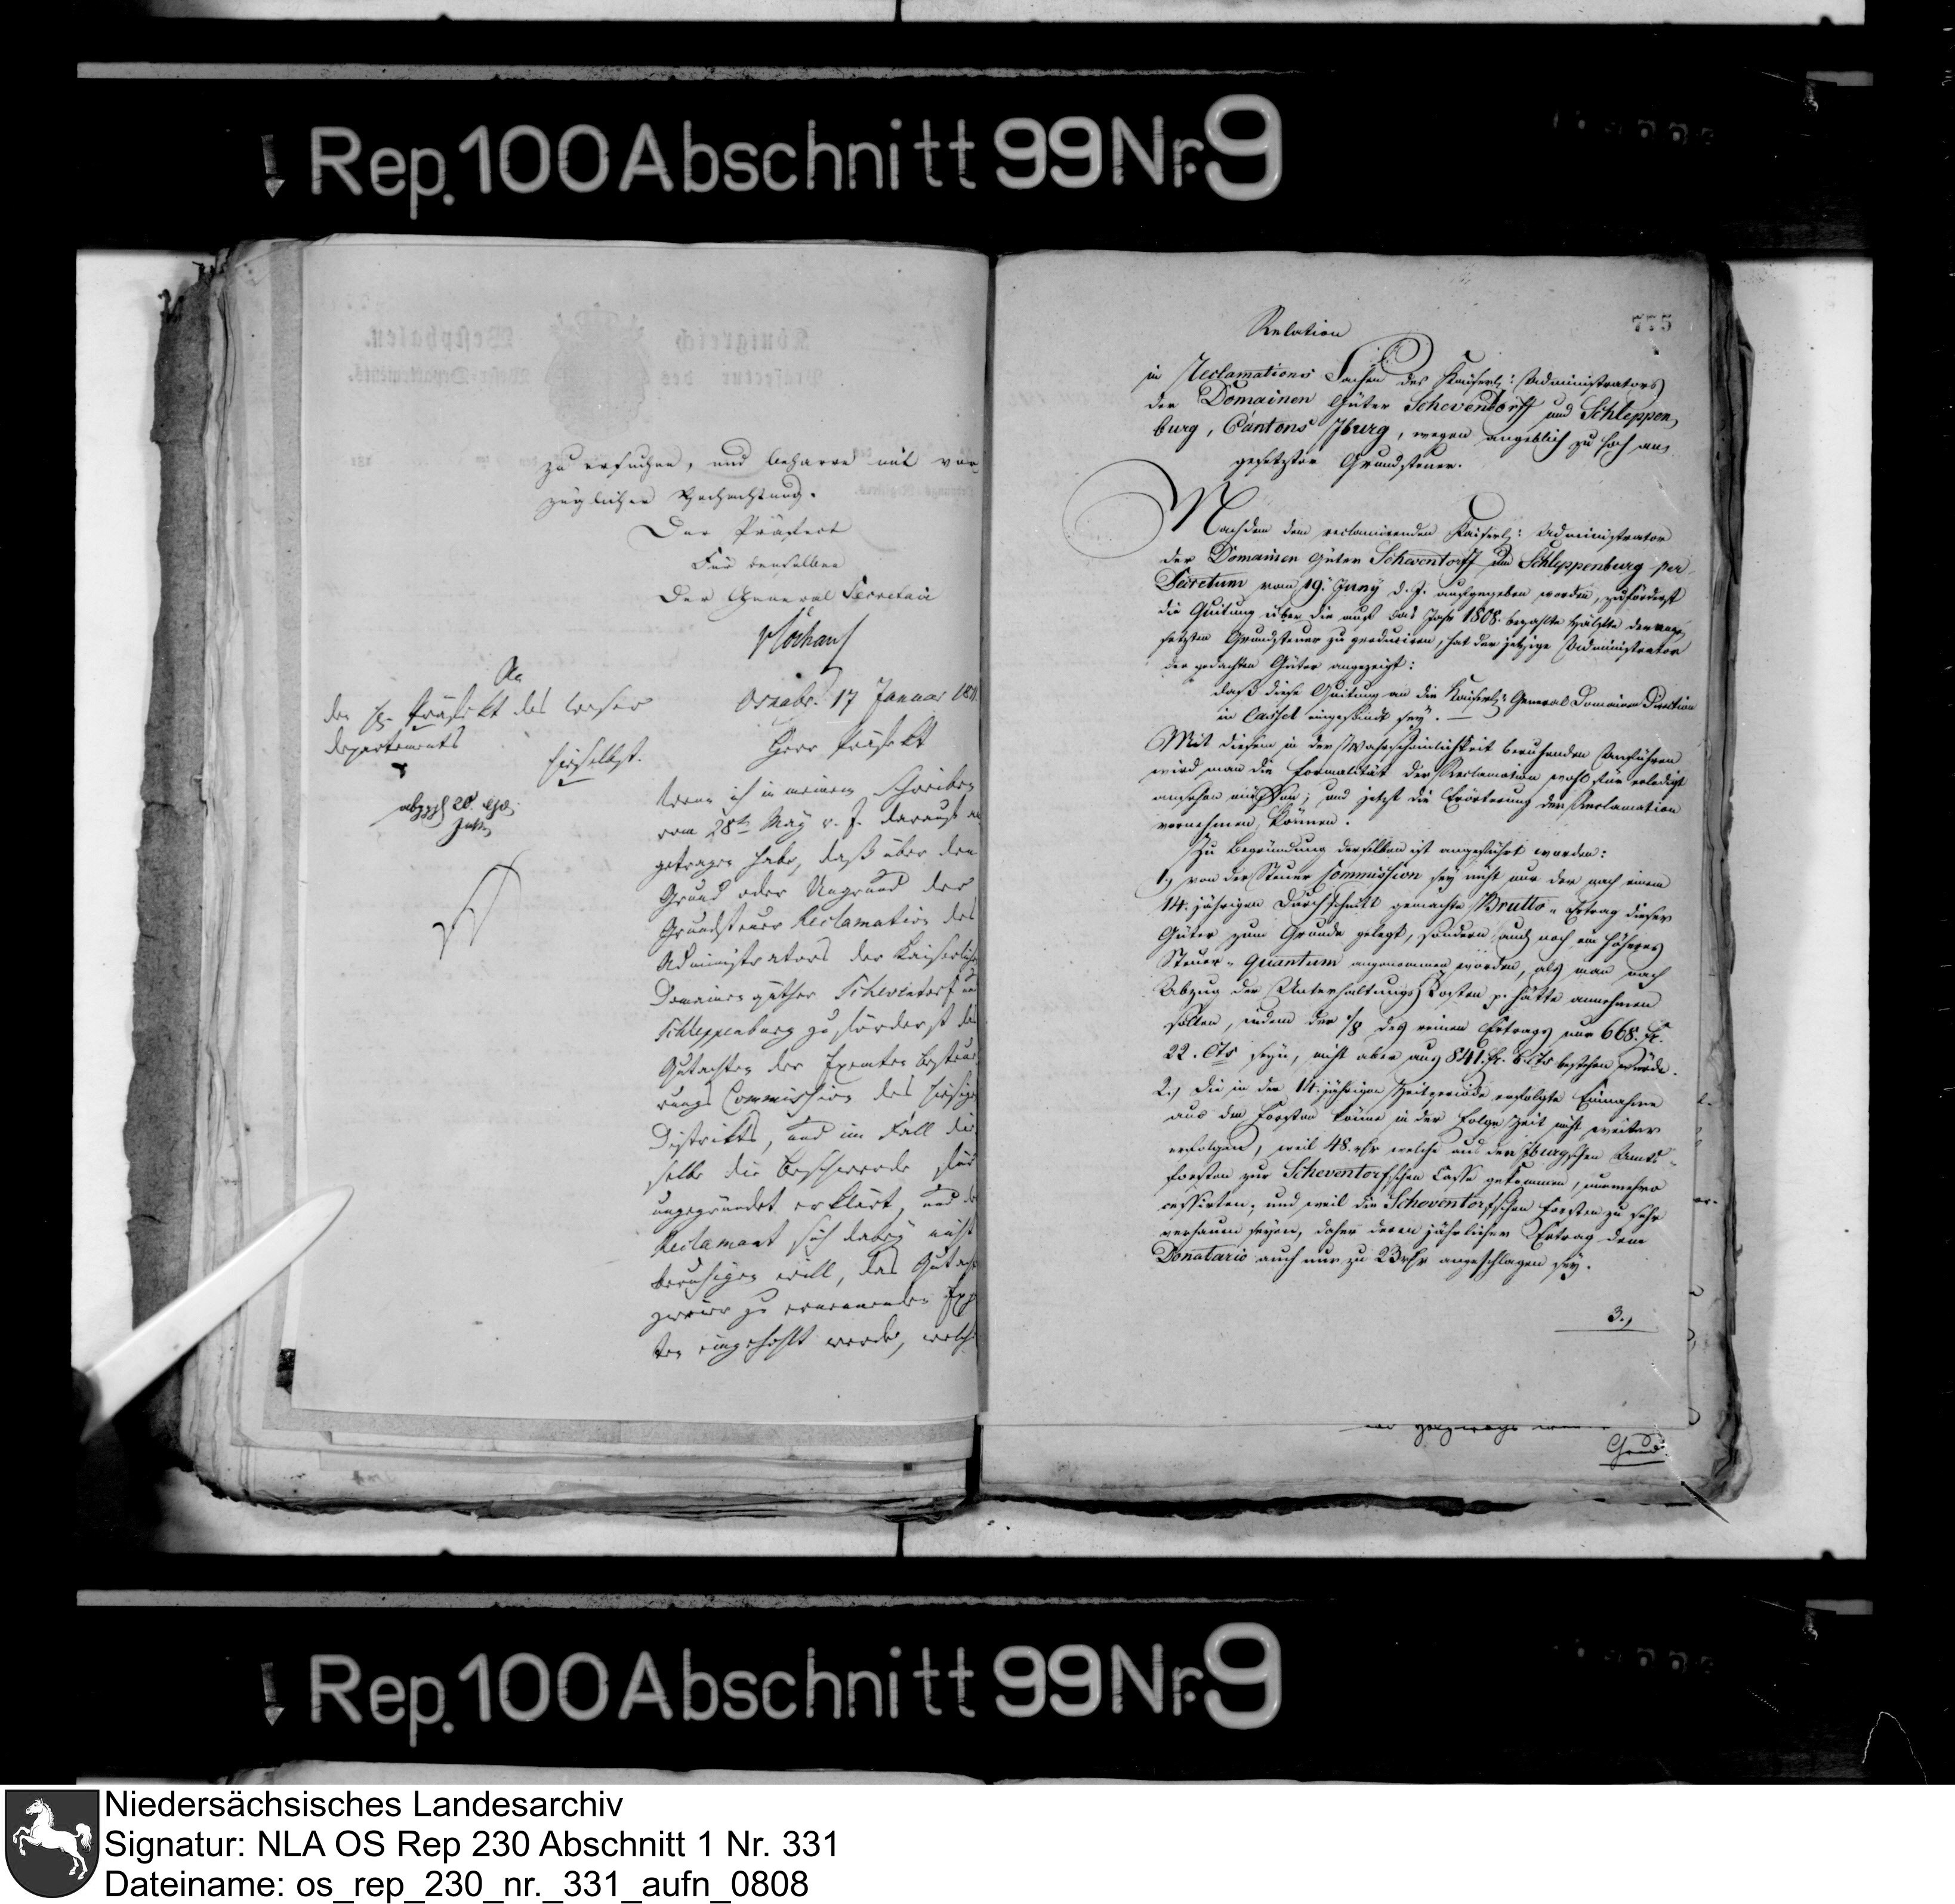 Rep. 100 Abschnitt 99 Nr. 9
zu ersuchen, und beharre mit vor
züglicher Hochachtung.
Der Präfect
Für denselben
Der General Secretair
An
den H. Präfekt des Weser
departements
hieselbst.
Osnabr. 17 Januar 181
Herr Präfekt
Wenn ich in meinem Schreiben
vom 28ten May v. J. darauf an
getragen habe, daß über den
Grund oder Ungrund der
Grundsteuer Reclamation des
Administrators der Kaiserlichen
Domainen güther Scheventorf und
Schleppenburg zu förderst das
Gutachten der Exemten Besteue
rungs Commission des hiesigen
Distrikts, und im Fall die
selbe die Beschwerde für
ungegründet erklärt, und der
Reclamant sich dabey nicht
beruhigen will, das Gutach
zweier zu ernennenden Exp
ten eingehohlt werde, welch
775
Relation
in Reclamations Sachen des Kaiserl: Administrators
der Domainen Güter Scheventorff und Schleppen
burg, Cantons Iburg, wegen angeblich zu hoch an
gesetzter Grundsteuer.
Nachdem dem reclamirenden Kaiserl: Administrator
der Domainen Güter Scheventorff und Schleppenburg per
Decretum vom 19. Juny d. J. aufgegeben worden, zuförderst
die Quitung über die auf das Jahr 1808. bezahlte Hälfte der ange
setzten Grundsteuer zu produciren, hat der jetzige Administrator
der gedachten Güter angezeigt:
daß diese Quitung an die Kaiserl: General Domainen Direction
in Cassel eingesandt sey.
Mit diesem in der Wahrscheinlichkeit beruhenden Anführen
wird man die Formalität der Reclamation wohl für erledigt
ansehen müssen; und jetzt die Erörterung der Reclamation
vornehmen können.
Zu Begründung derselben ist angeführt worden:
1.) von der Steuer Commission sey nicht nur der nach einem
14. jährigen Durchschnitt gemachte Brutto-Ertrag dieser
Güter zum Grunde gelegt, sondern auch noch ein höheres
Steuer-Quantum angenommen worden, als man nach
Abzug der Unterhaltungs Kosten p. hätte annehmen
sollen, indem der 1/8 des reinen Ertrags nur 668. fr.
22. Cts seyn, nicht aber aus 841. fr. 8. Cts bestehen würde.
2.) die in der 14. jährigen Zeitperiode erfolgte Einnahme
aus den Forsten könne in der Folge Zeit nicht weiter
erfolgen, weil 48. rthr welche aus den Iburgschen Amts-
forsten zur Scheventorfschen Casse gekommen, nunmehro
cessirten, und weil die Scheventorfschen Forsten zu sehr
verhauen seyen, daher deren jährlicher Ertrag dem
Donatario auch nur zu 23 rthr angeschlagen sey.
3.)
Rep. 100 Abschnitt 99 Nr. 9
Niedersächsisches Landesarchiv
Signatur: NLA OS Rep 230 Abschnitt 1 Nr. 331
Dateiname: os_rep_230_nr._331_aufn_0808